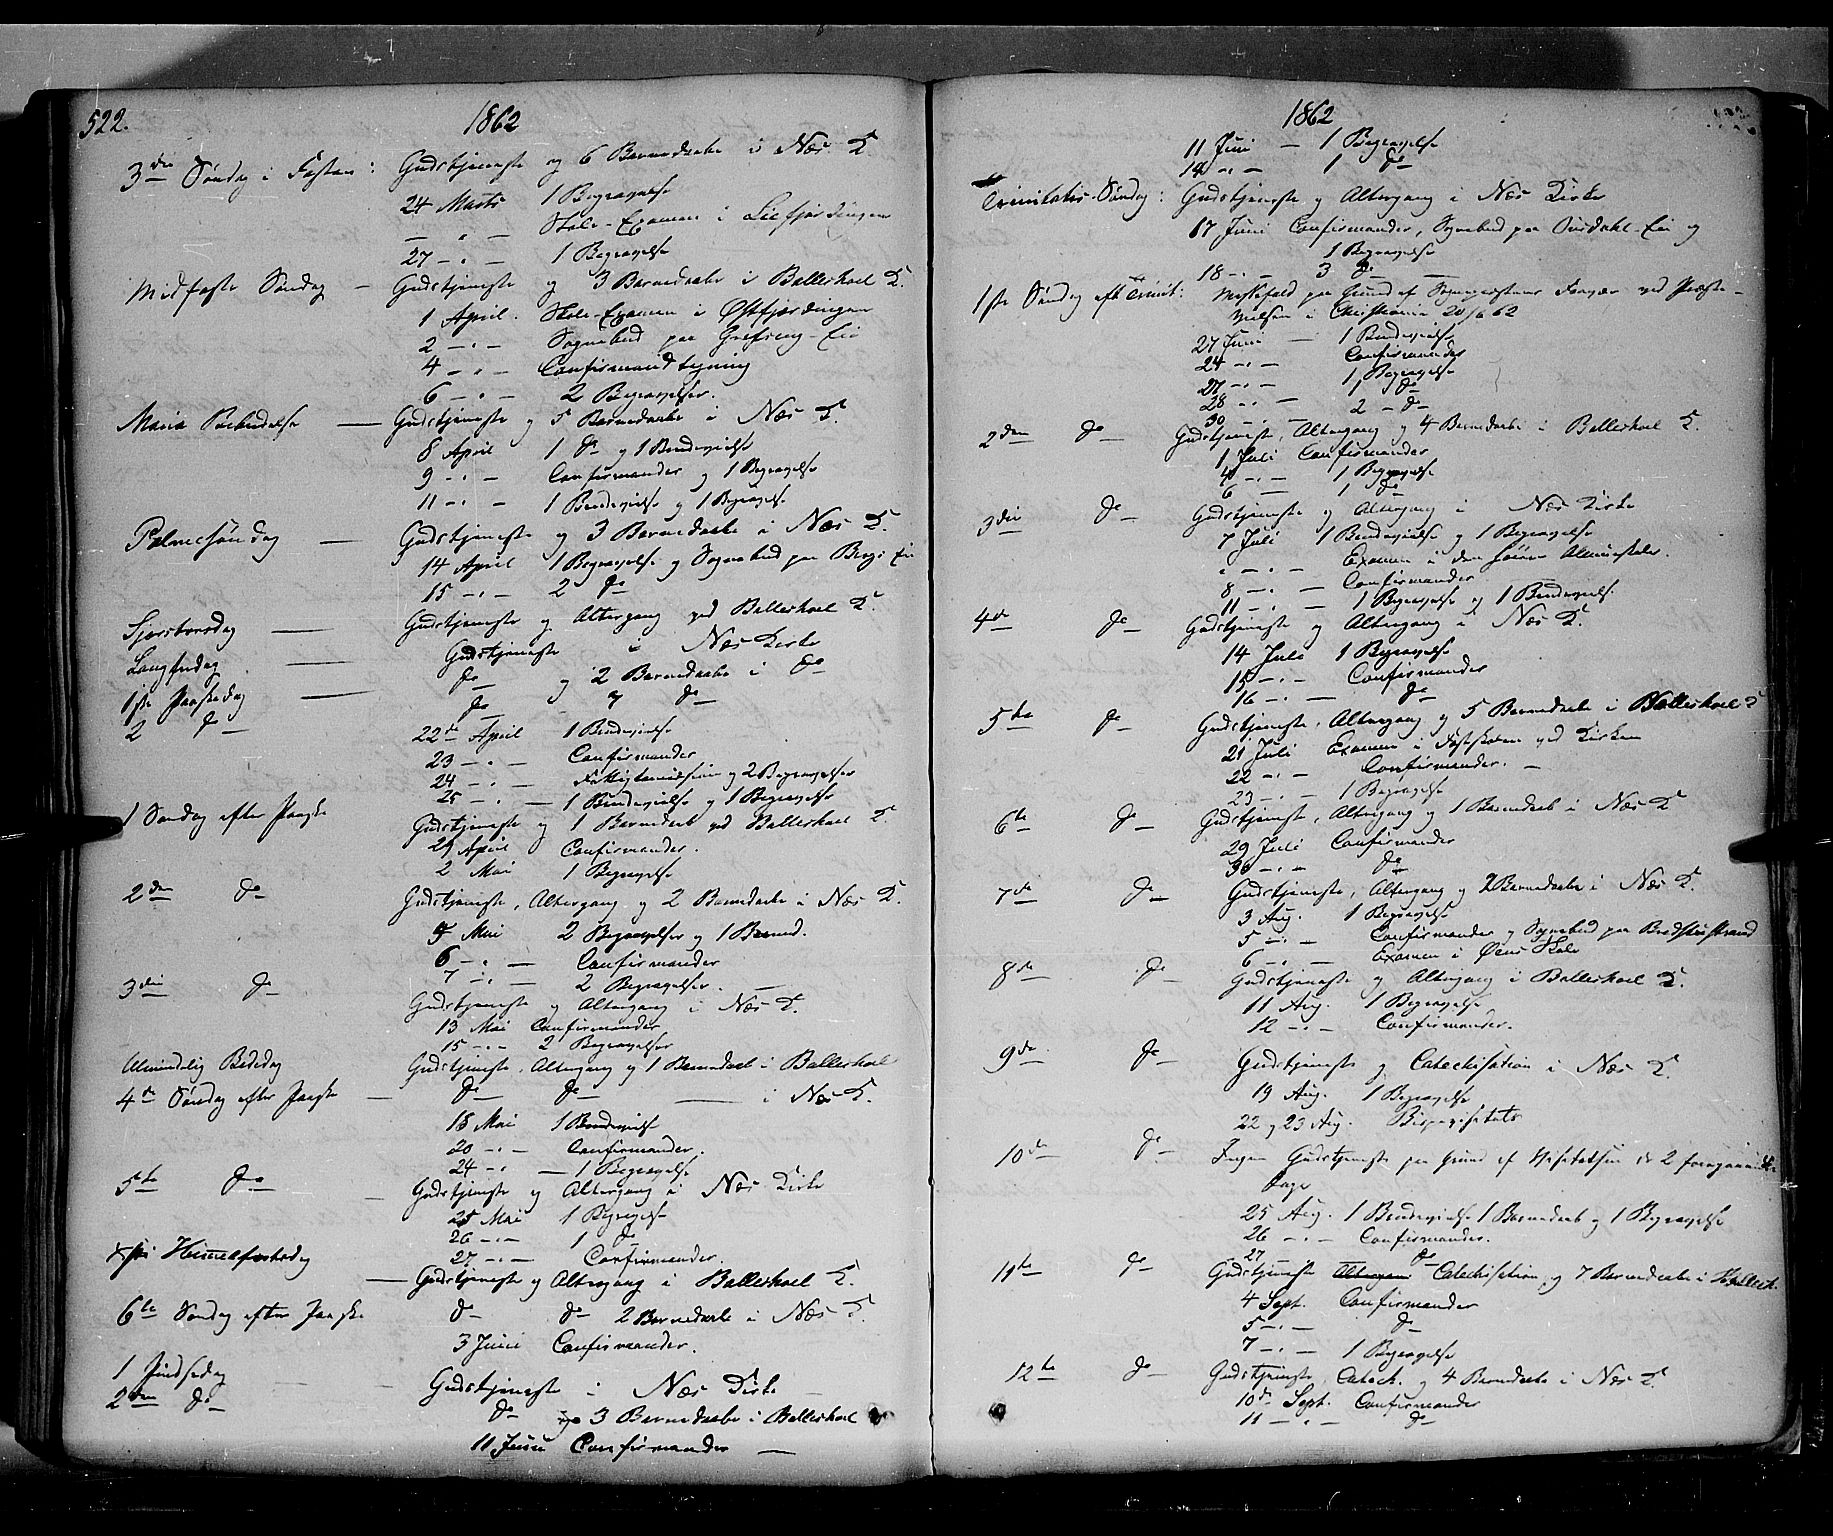 522.
1862
3die Søndag i Fasten: Gudstjeneste og 6 Barnedaabe i Næs K.
24 Marts 1 Begravelse
— " — Skole-Examen i
27 — " — 1 Begravelse
Midfaste Søndag — Gudstjeneste og 3 Barnedaabe i Balleshoel K.
1 April. Skole-Examen i Østfjerdingen
2 — " — Sognebud paa Grefseng-Eie
4 — " — Confirmandlæsning
6 — " — 2 Begravelser.
Maria Bebudelse — Gudstjeneste og 5 Barnedaabe i Næs K.
8 April 1 do og 1 Brudevielse
9 — " — Confirmander og 1 Begravelse
11 — " — 1 Brudevielse og 1 Begravelse
Palmesøndag — Gudstjeneste og 3 Barnedaabe i Næs K.
14 April 1 Begravelse og Sognebud paa Bergs Eie
15 — " — 2 do
Skjærtorsdag — Gudstjeneste og Altergang ved Balleshoel K.
Langfredag — Gudstjeneste i Næs Kirke
1ste Paaskedag — do og 2 Barnedaabe i do
2 do do 7 do
22de April 1 Brudevielse
23 — " — Confirmander
24 — " — og 2 Begravelser
25 — " — 1 Brudevielse og 1 Begravelse
1 Søndag efter Paaske Gudstjeneste og 1 Barnedaab ved Balleshoel K.
29 April Confirmander.
2 Mai 1 Begravelse
2den do Gudstjeneste, Altergang og 2 Barnedaabe i Næs K.
5 Mai 2 Begravelser og 1 Barned.
6 — " — Confirmander
7 — " — 2 Begravelser.
3die do Gudstjeneste og Altergang i Næs K.
13 Mai Confirmander
15 — " — 2 Begravelser
Almindelig Bededag Gudstjeneste, Altergang og 1 Barnedaab i Balleshoel
4de Søndag efter Paaske — do do — i Næs K.
18 Mai 1 Brudevielse
20 — " — Confirmander.
24 — " — 1 Begravelse
5te do — Gudstjeneste og Altergang i Næs Kirke
25 Mai 1 Begravelse
26 — " — 1 do
27 — " — Confirmander.
Kristi Himmelfartsdag — Gudstjeneste og Altergang i Balleshoel K.
6te Søndag efter Paaske do do 2 Barnedaabe i Næs K.
3 Juni Confirmander.
1 Pindsedag — Gudstjeneste i Næs Kirke
2den do do og 3 Barnedaabe i Balleshoel K
11 Juni Confirmander —
1862
11 Juni — 1 Begravelse
14 — " — 1 do
Trinitatis-Søndag: Gudstjeneste og Altergang i Næs Kirke
17 Juni Confirmander, Sognebud paa Eie og
1 Begravelse
18 — " — 3 do
1ste Søndag eft Trinit: Messefald paa Grund af Sognepræstens Fravær ved Præste-
i Christiania 20/6 62
27 Juni — 1 Brudevielse
24 — " — Confirmander
27 — " — 1 Begravelse
28 — " — 1 do
30 — " — 2 do
2den do Gudstjeneste, Altergang og 4 Barnedaabe i Balleshoel K.
1 Juli Confirmander
4 — " — 1 Begravelse
6 — 1 do
3die do Gudstjeneste og Altergang i Næs Kirke
7 Juli 1 Brudevielse og 1 Begravelse
" — " — Examen i den høiere Almueskole.
8 — " — Confirmander
11 — " — 1 Begravelse og 1 Brudevielse
4de do Gudstjeneste og Altergang i Næs K.
14 Juli 1 Begravelse
15 — " — Confirmander
16 — " — do
5te do Gudstjeneste, Altergang og 5 Barnedaabe i Balleshoel K
21 Juli Examen i Fastskolen ved Kirken
22 — " — Confirmander. —
23 — " — 1 Begravelse
6te do Gudstjeneste, Altergang og 1 Barnedaab i Næs K
29 Juli Confirmander
30 — " — do
7de do Gudstjeneste, Altergang og 2 Barnedaabe i Næs K.
3 Aug. 1 Begravelse
5 — " — Confirmander og Sognebud paa
6 — " — Examen i Skole
8de do Gudstjeneste og Altergang i Balleshoel K.
11 Aug. 1 Begravelse
12 — " — Confirmander.
9de do Gudstjeneste og Catechisation i Næs K.
19 Aug. 1 Begravelse
22 og 23 Aug. Bispevisitats
10de do Ingen Gudstjeneste paa Grund af Visitatsen de 2 foregaaende
Dage
25 Aug. 1 Brudevielse 1 Barnedaab og 1 Begravelse
26 — " — Confirmander.
27 do
11te do Gudstjeneste Altergang Catechisation, og 7 Barnedaabe i Ballesh.
4 Sept. Confirmander
5 — " — do
7 — " — 1 Begravelse
12te do Gudstjeneste, Catech. og 4 Barnedaabe i Næs K.
10de Sept. Confirmander
11 — " — do